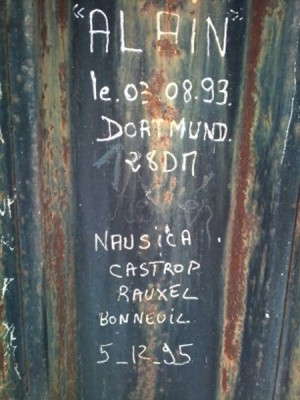 "ALAIN"
le.03 08.93.
DORTMUND.
28DM
NAUSICA.
CASTROP
RAUXEL
BONNEUIL.
5_12_95